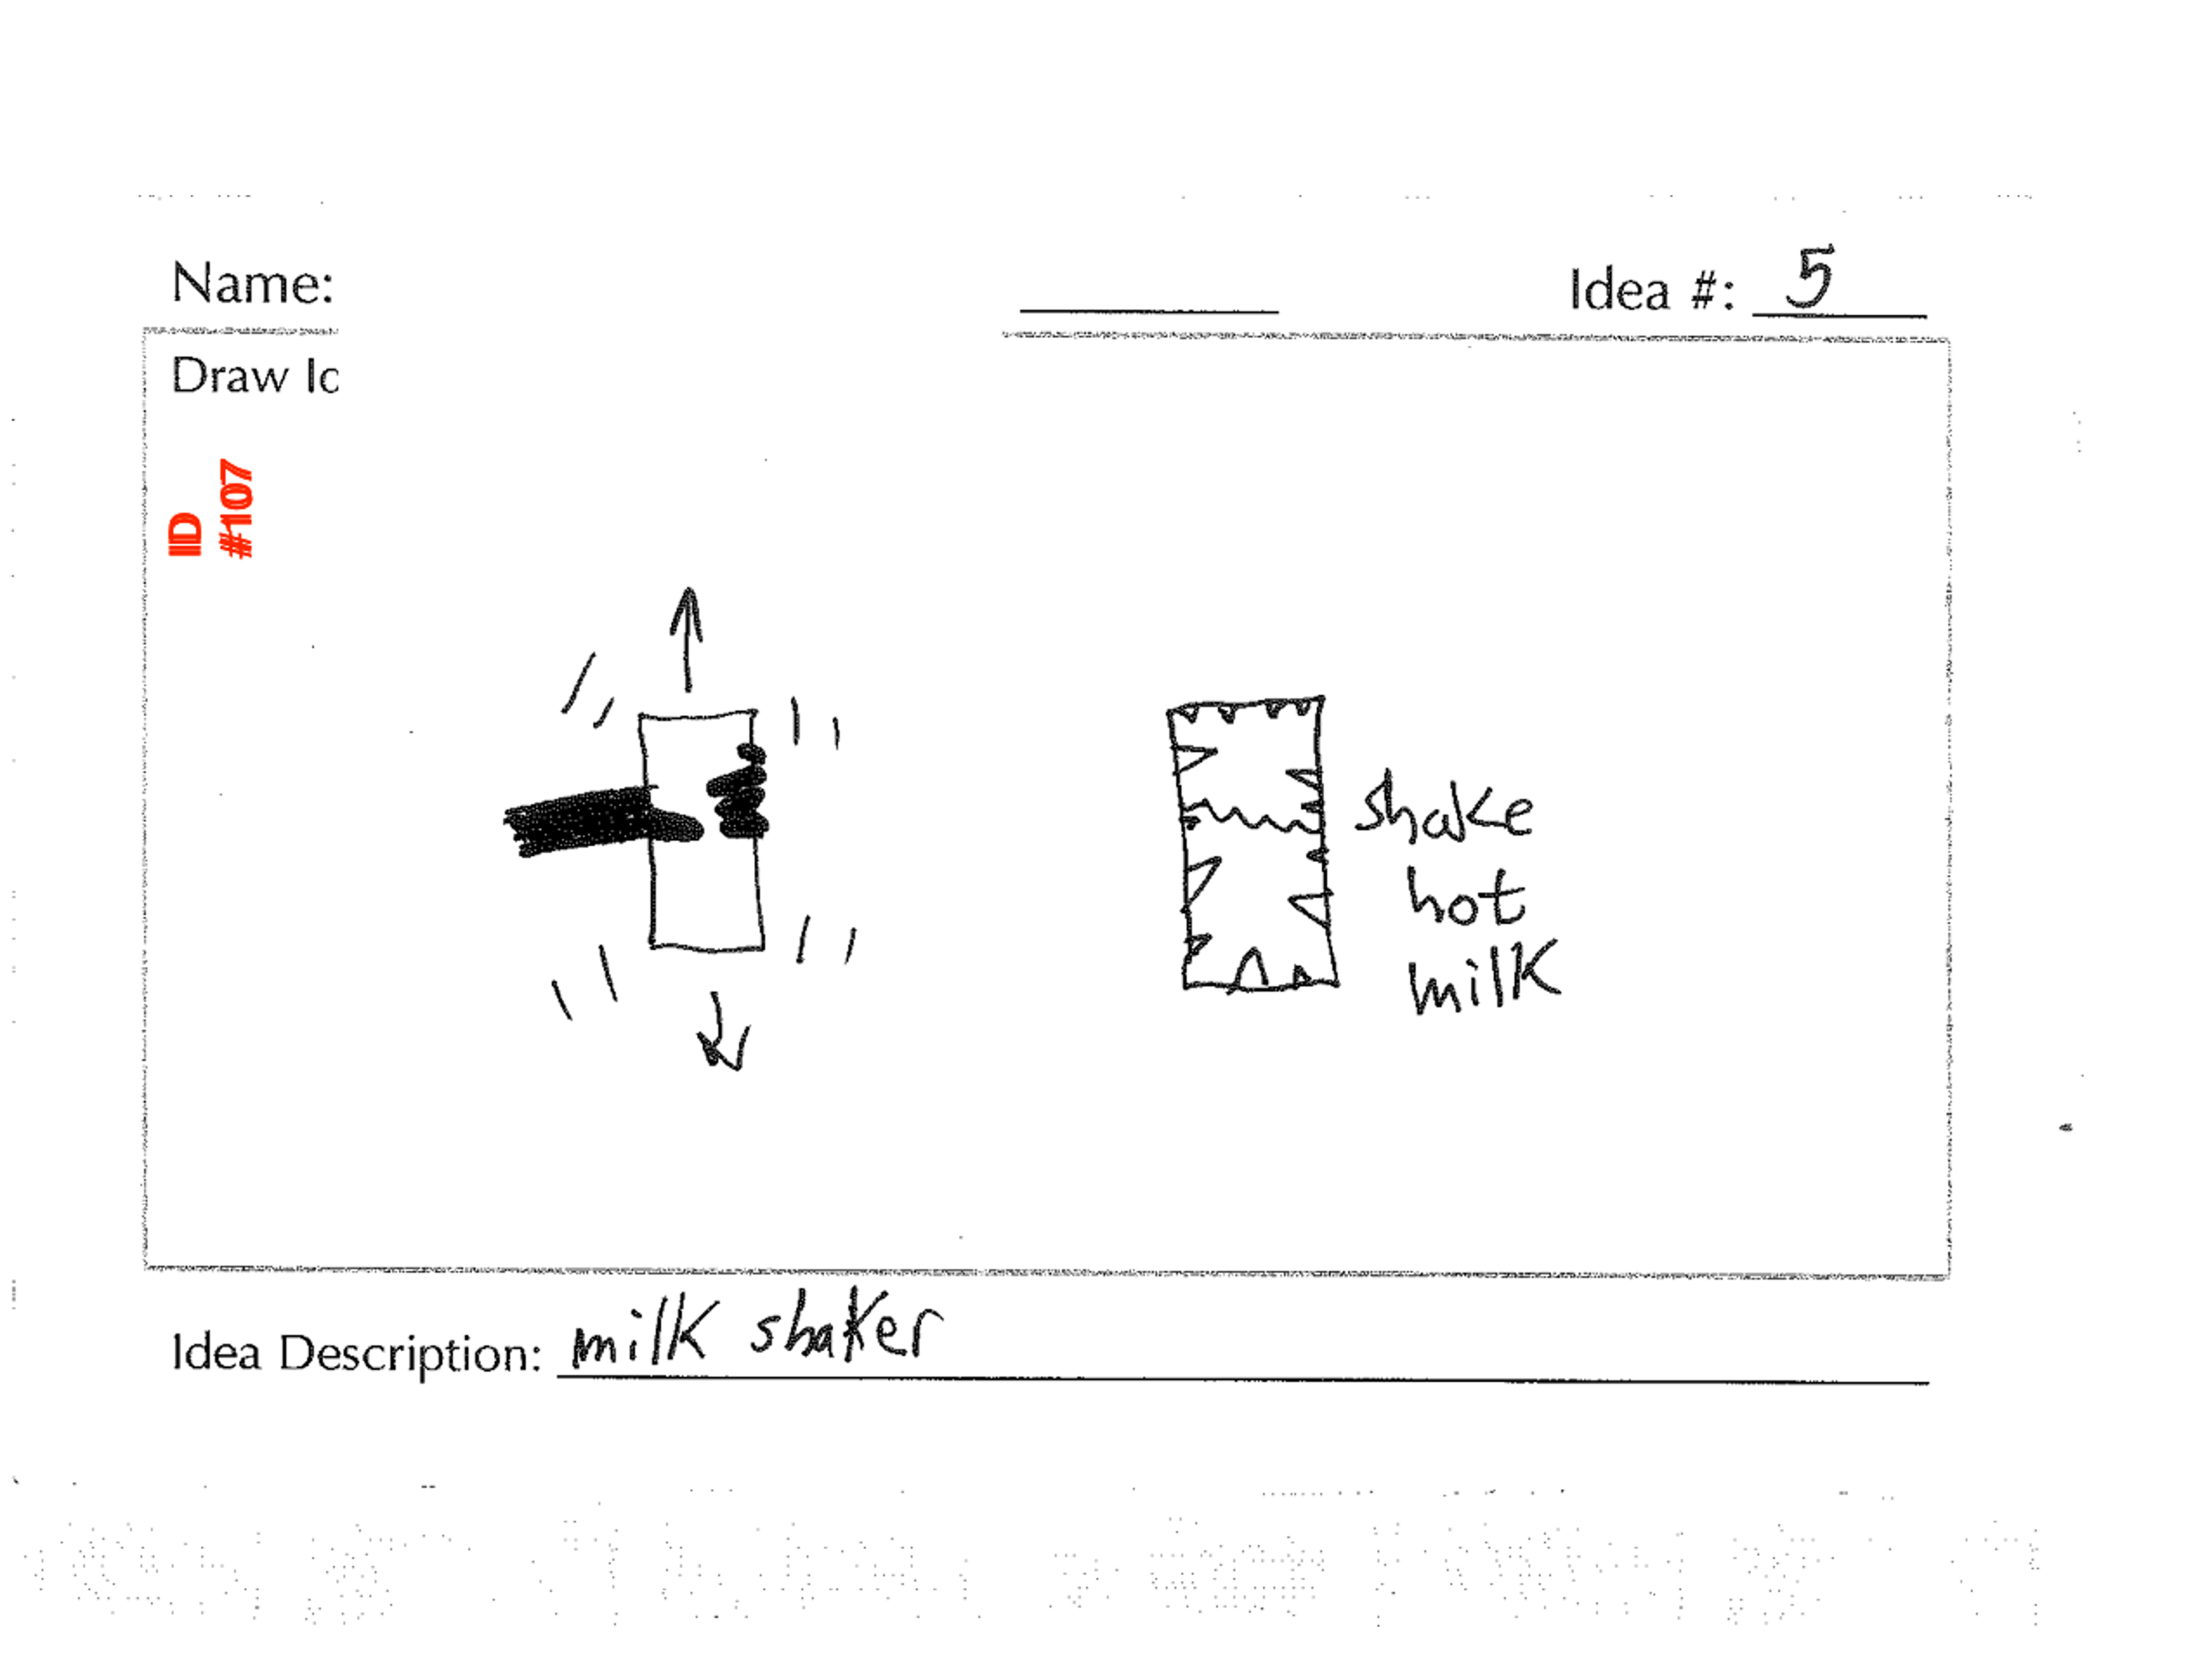 Name:
Idea #: 5
Draw Id
ID
#107
shake
hot
milk
Idea Description: milk shaker